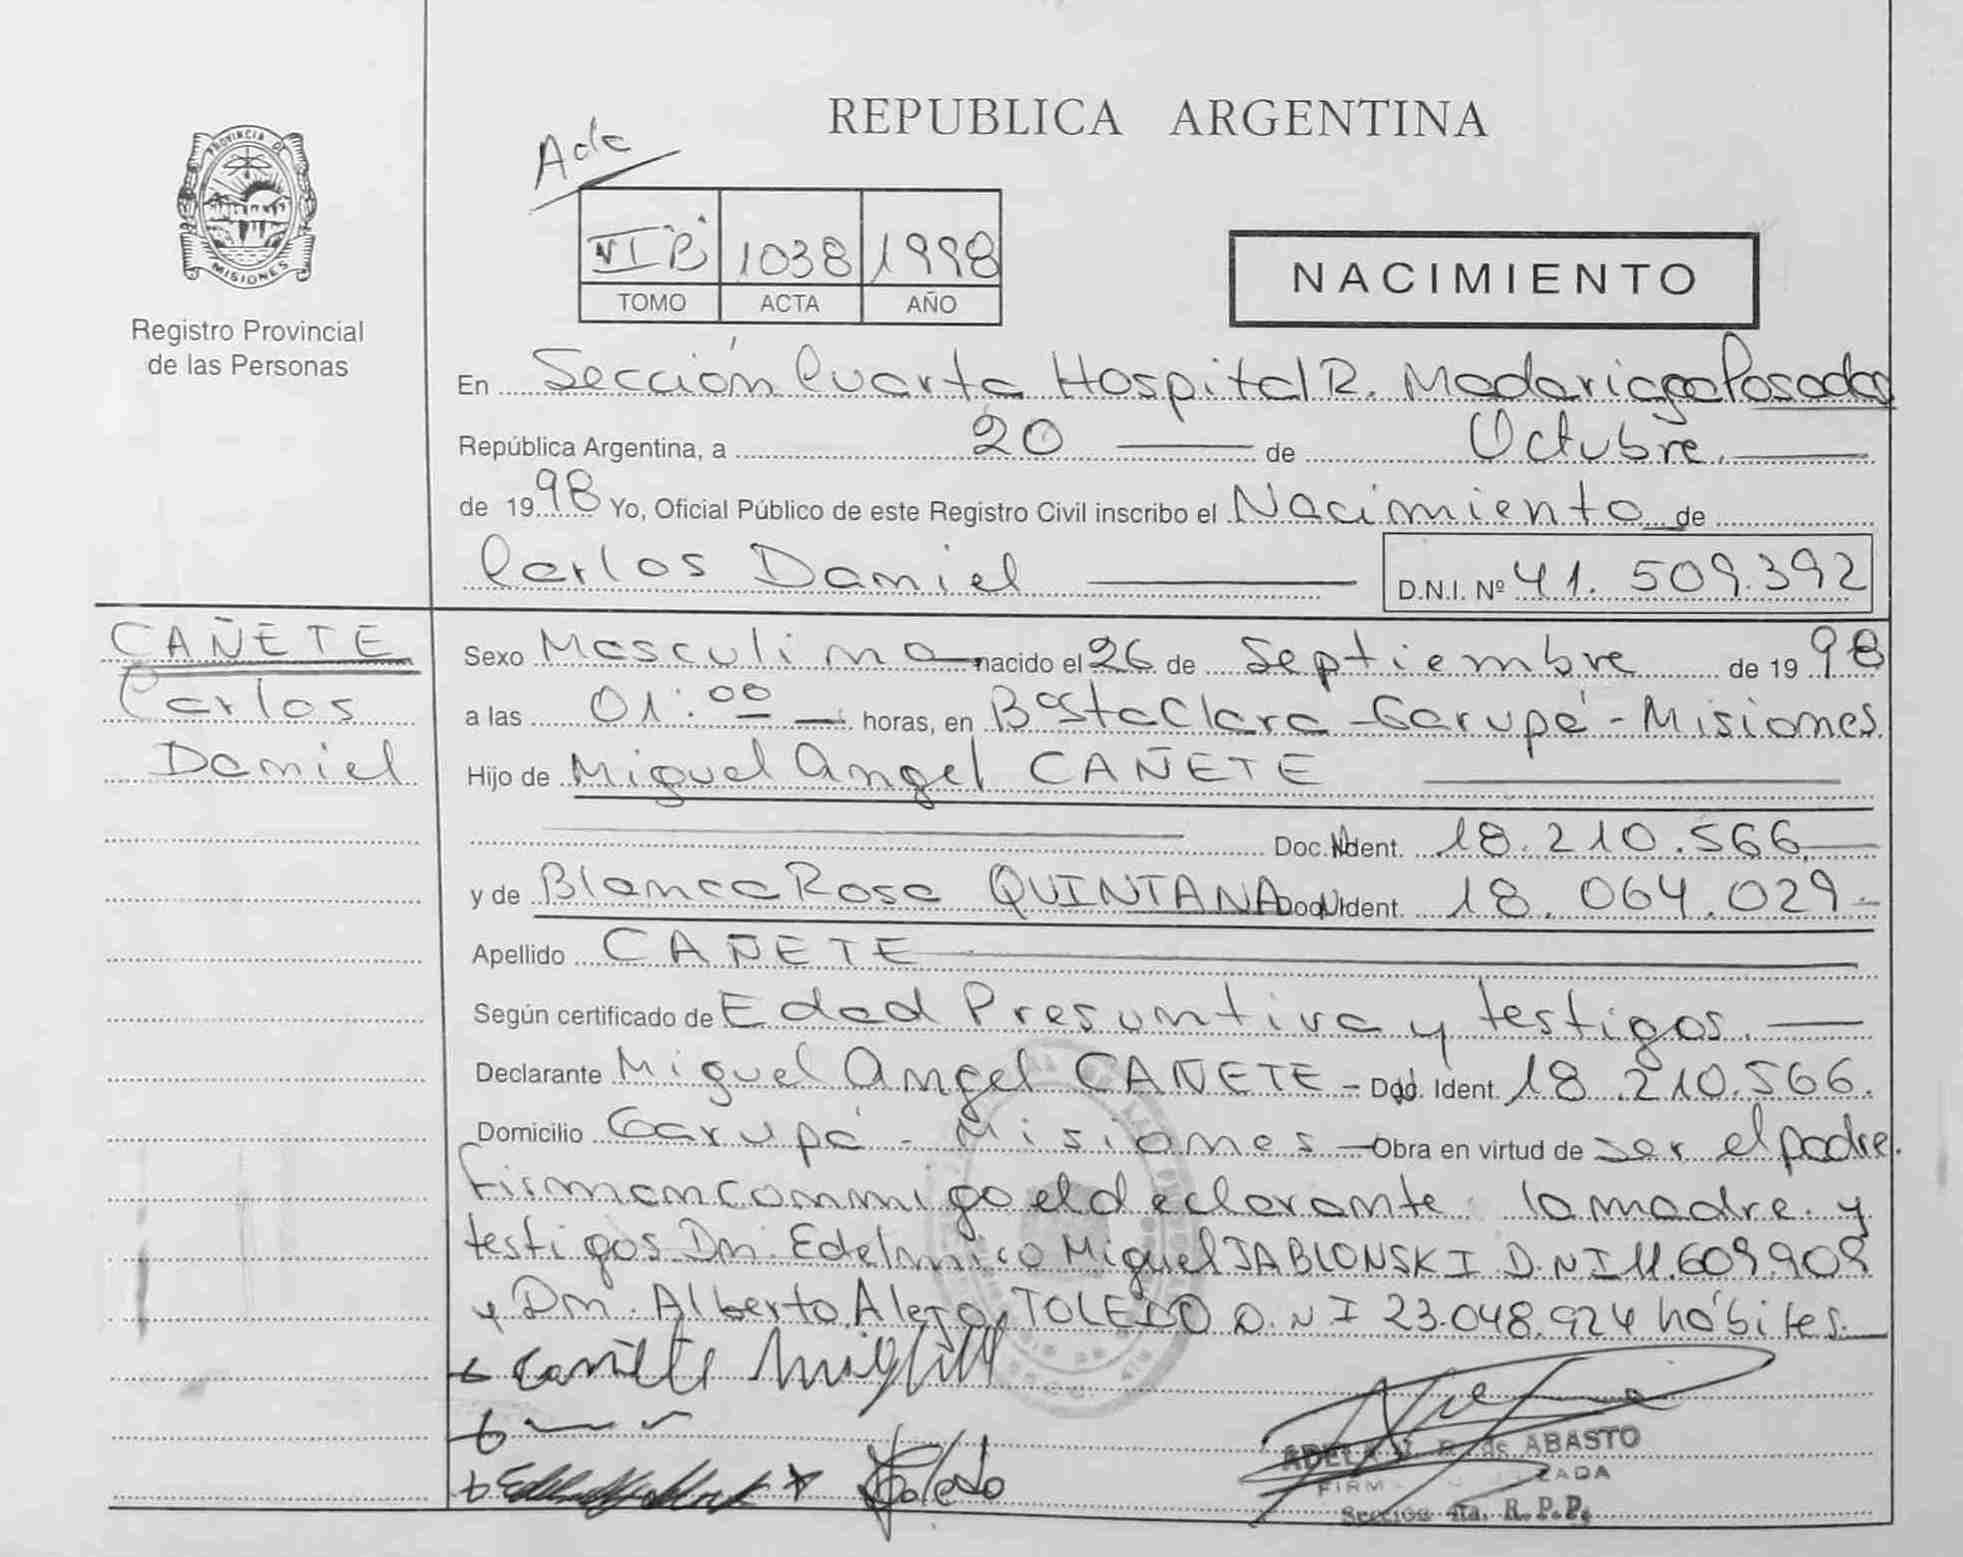 REPUBLICA ARGENTINA
Acta
PROVINCIA DE
MISIONES
Registro Provincial
de las Personas
VI "B" 1038 1998
TOMO ACTA AÑO
NACIMIENTO
En Sección Cuarta Hospital R. Madariaga Posadas
República Argentina, a 20 de Octubre.
de 1998 Yo, Oficial Público de este Registro Civil inscribo el Nacimiento de
Carlos Daniel D.N.I. Nº 41.509.392
CAÑETE
Carlos
Daniel
Sexo Masculino nacido el 26 de Septiembre de 1998
a las 01:00 horas, en Bº Sta Clara - Garupá - Misiones
Hijo de Miguel Angel CAÑETE
Doc. Ident. 18.210.566
y de Blanca Rosa QUINTANA Doc. Ident. 18.064.029.-
Apellido CAÑETE
Según certificado de Edad Presuntiva y testigos.
Declarante Miguel Angel CAÑETE - Doc. Ident. 18.210.566.
Domicilio Garupá - Misiones - Obra en virtud de ser el padre.
Firman conmigo el declarante la madre y
testigos Dn. Edelmiro Miguel JABLONSKI D.N.I 11.609.909
y Dn. Alberto Alejo TOLEDO D.N.I 23.048.924 hábiles.
Cañete Miguel
Toledo
ADELA de ABASTO
Sección 4ta. R.P.P.